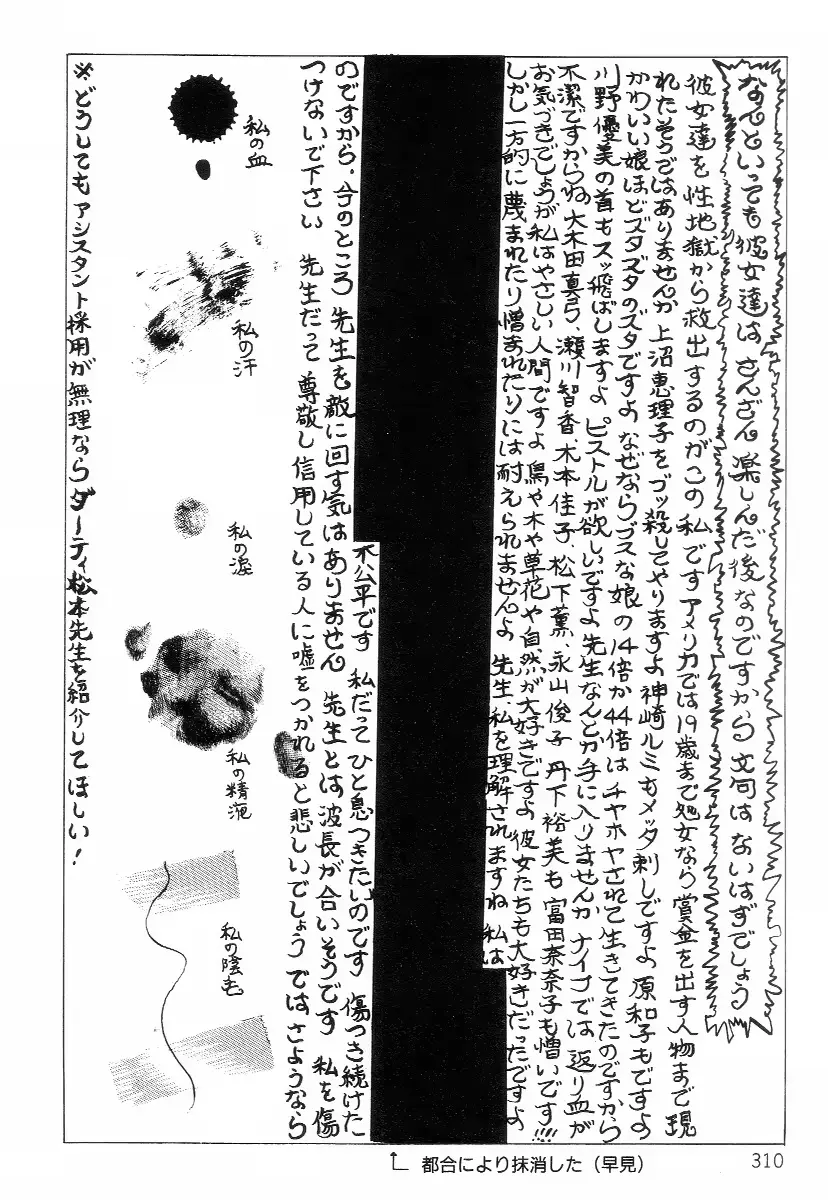 なんといっても彼女達は さんざん 楽しんだ 後なのですから 文句は ないはずでしょう
彼女達を 性地獄から救出するのが この私です アメリカでは 19歳まで処女なら 賞金を出す人物まで 現
れたそうではありませんか 上沼恵理子をブッ殺してやりますよ 神崎ルミもメッタ刺しですよ 原和子もですよ
かわいい娘ほどズタズタのズタですよ なぜならブスな娘の 14倍か44倍は チヤホヤされて生きてきたのですから
川野優美の首もスッ飛ばしますよ ピストルが欲しいですよ 先生なんとか手に入りませんか ナイフでは 返り血が
不潔ですからね 大木田真弓、瀬川智香、木本佳子、松下薫、永山俊子 丹下裕美も 富田奈奈子も憎いです!!!!
お気づきでしょうが 私はやさしい人間ですよ 鳥や木や草花や自然が大好きですよ 彼女たちも大好きだったですよ
しかし一方的に蔑まれたり憎まれたりには耐えられませんよ 先生、私を理解されますね 私は
不公平です 私だって ひと息つきたいのです 傷つき続けた
のですから、今のところ 先生を敵に回す気はありません 先生とは 波長が合いそうです 私を傷
つけないで下さい 先生だって 尊敬し信用している人に嘘をつかれると悲しいでしょう ではさようなら
私の血
私の汗
私の涙
私の精液
私の陰毛
※どうしてもアシスタント採用が無理ならダーティ松本先生を紹介してほしい!
都合により抹消した（早見）
310